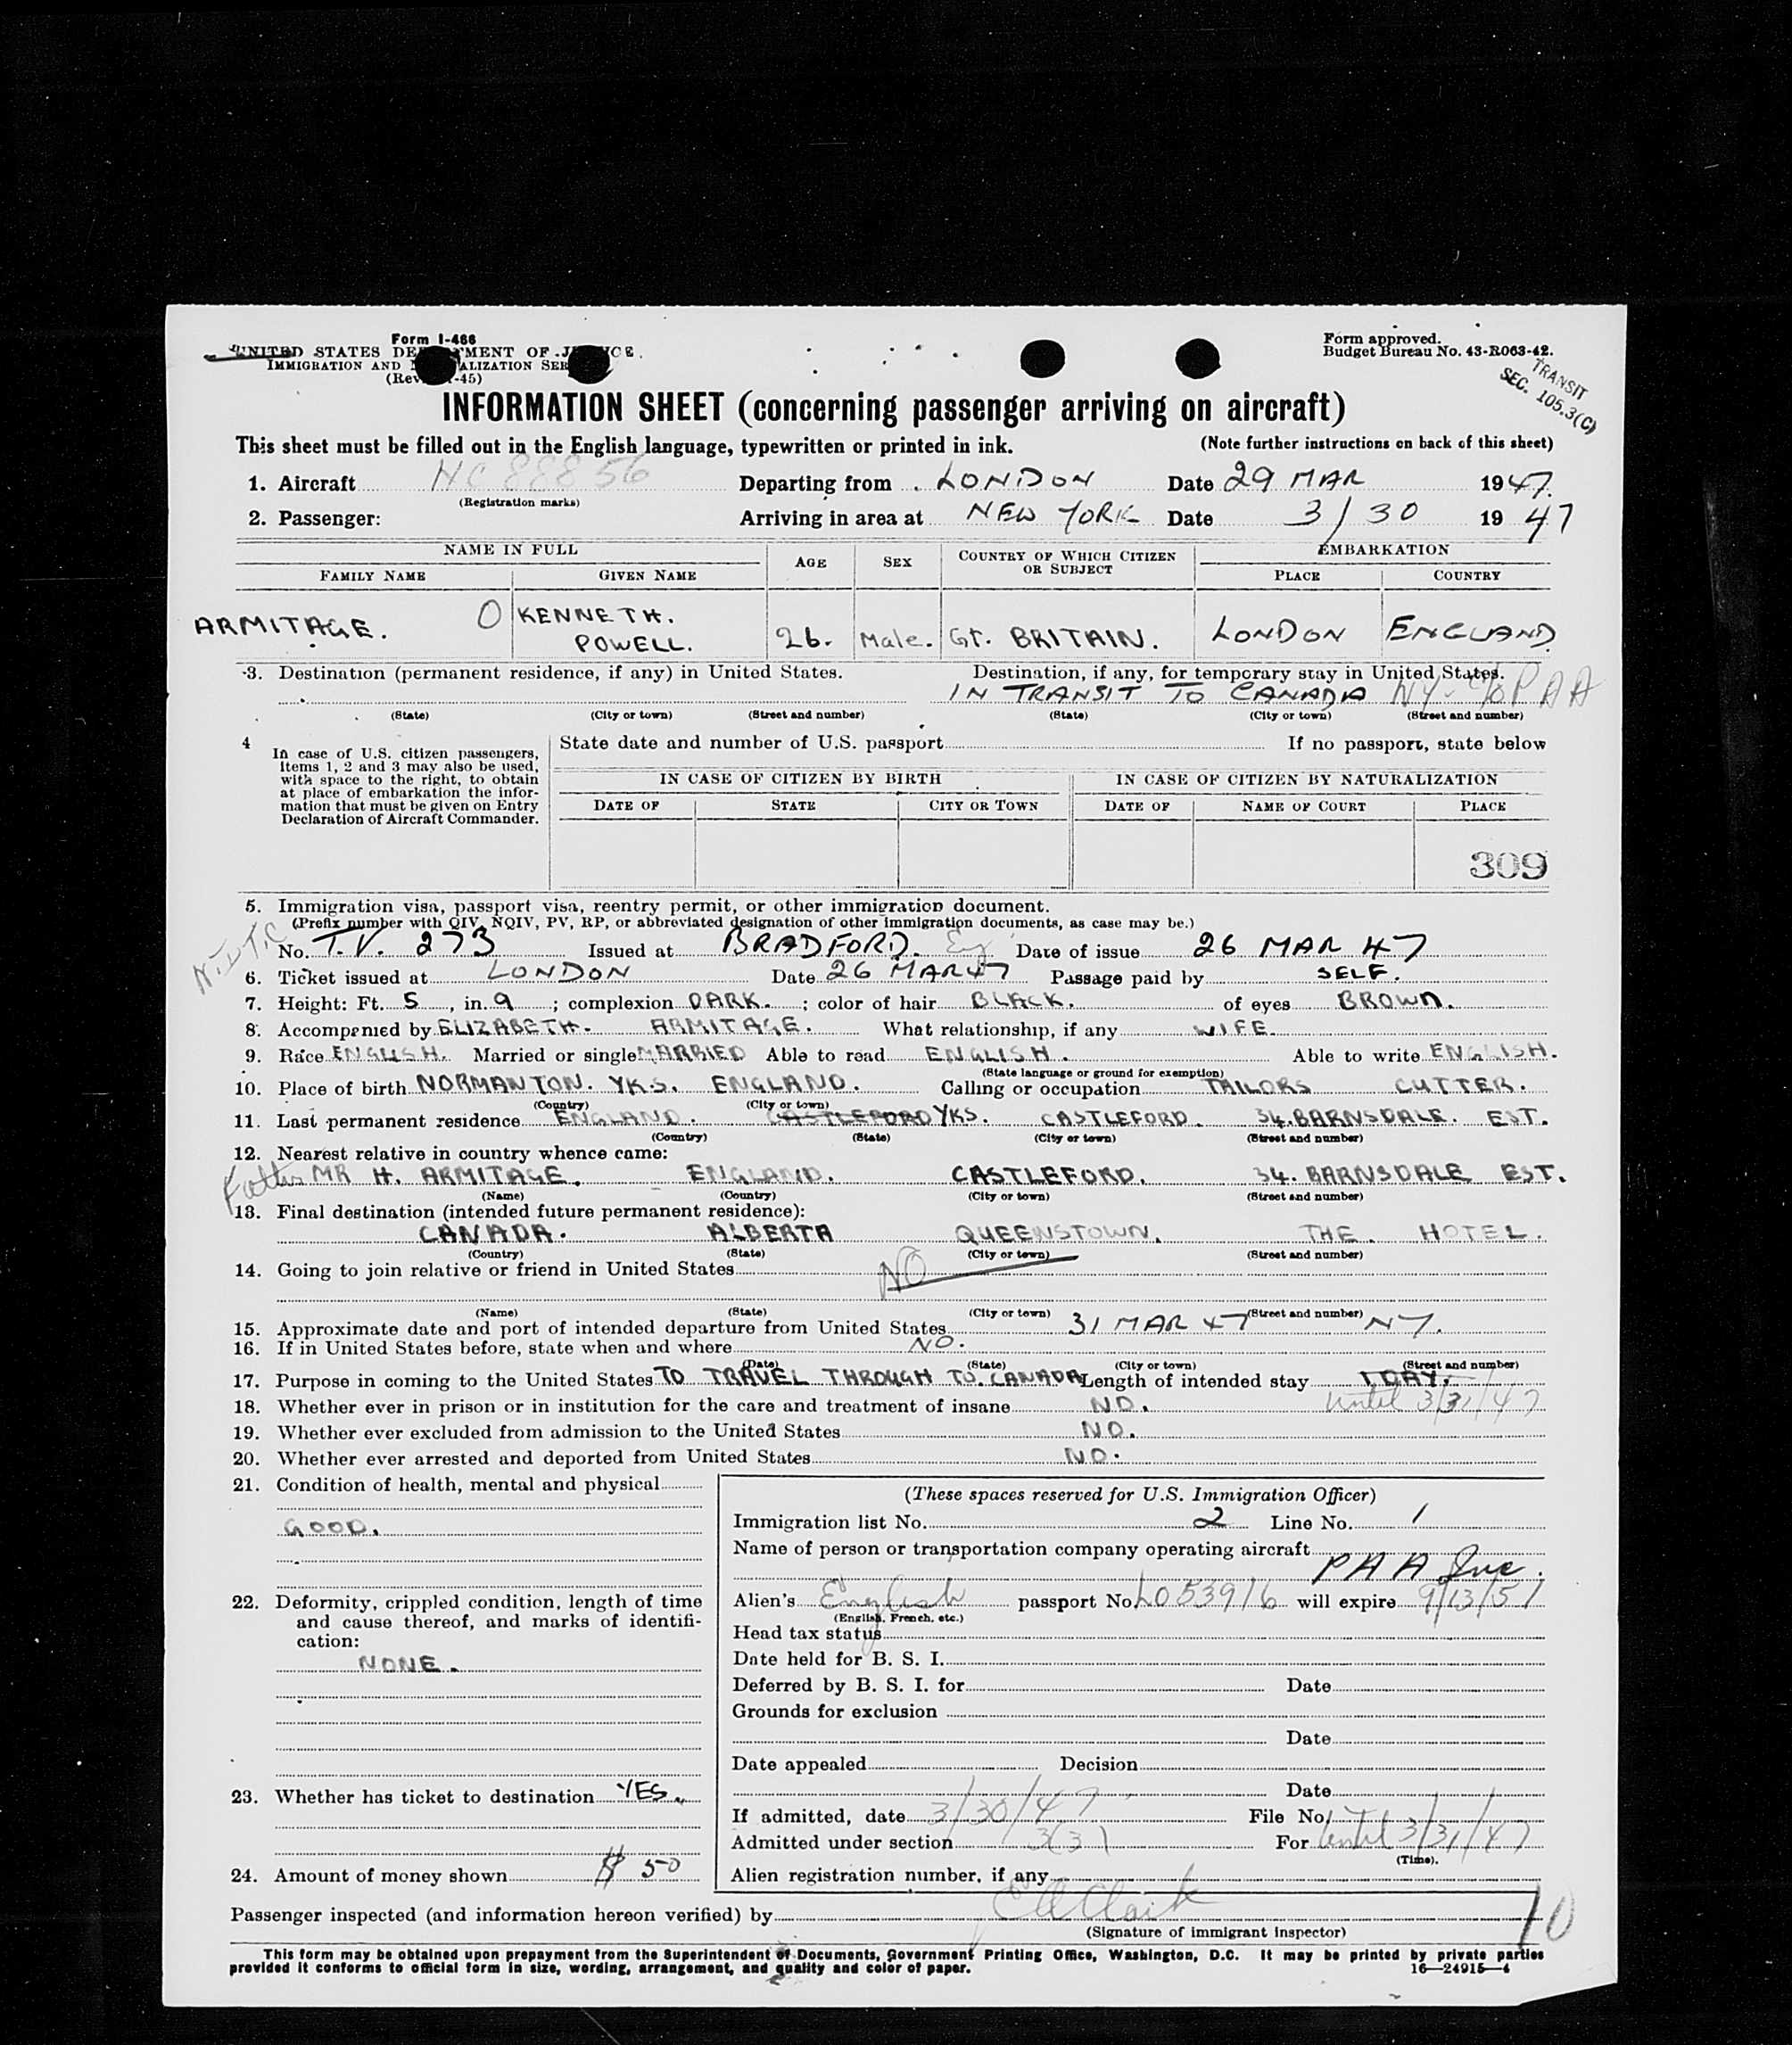 Form I-466
UNITED STATES DE MENT OF J ICE
IMMIGRATION AND ALIZATION SER
(Rev. -45)
Form approved.
Budget Bureau No. 43-R063-42.
TRANSIT
SEC. 105.3(C)
INFORMATION SHEET (concerning passenger arriving on aircraft)
This sheet must be filled out in the English language, typewritten or printed in ink. (Note further instructions on back of this sheet)
1. Aircraft NC 88856 Departing from LONDON Date 29 MAR 1947.
(Registration marks)
2. Passenger: Arriving in area at NEW YORK Date 3/30 1947
NAME IN FULL AGE SEX COUNTRY OF WHICH CITIZEN OR SUBJECT EMBARKATION
FAMILY NAME GIVEN NAME PLACE COUNTRY
ARMITAGE. O KENNETH.
POWELL. 26. Male. Gt. BRITAIN. LONDON ENGLAND.
3. Destination (permanent residence, if any) in United States. Destination, if any, for temporary stay in United States.
IN TRANSIT TO CANADA NY- c/o PAA
(State) (City or town) (Street and number) (State) (City or town) (Street and number)
4 In case of U.S. citizen passengers,
Items 1, 2 and 3 may also be used,
with space to the right, to obtain
at place of embarkation the infor-
mation that must be given on Entry
Declaration of Aircraft Commander.
State date and number of U.S. passport If no passport, state below
IN CASE OF CITIZEN BY BIRTH IN CASE OF CITIZEN BY NATURALIZATION
DATE OF STATE CITY OR TOWN DATE OF NAME OF COURT PLACE
309
5. Immigration visa, passport visa, reentry permit, or other immigration document.
(Prefix number with QIV, NQIV, PV, RP, or abbreviated designation of other immigration documents, as case may be.)
No. T.V. 273 Issued at BRADFORD. Eng Date of issue 26 MAR 47
6. Ticket issued at LONDON Date 26 MAR 47 Passage paid by SELF.
7. Height: Ft. 5, in. 9; complexion DARK.; color of hair BLACK. of eyes BROWN.
8. Accompanied by ELIZABETH. ARMITAGE. What relationship, if any WIFE.
9. Race ENGLISH. Married or single MARRIED Able to read ENGLISH. Able to write ENGLISH.
(State language or ground for exemption)
10. Place of birth NORMANTON. YKS. ENGLAND. Calling or occupation TAILORS CUTTER.
(Country) (City or town)
11. Last permanent residence ENGLAND. CASTLEFORD YKS. CASTLEFORD. 34. BARNSDALE. EST.
(Country) (State) (City or town) (Street and number)
12. Nearest relative in country whence came:
Father MR H. ARMITAGE. ENGLAND. CASTLEFORD. 34. BARNSDALE EST.
(Name) (Country) (City or town) (Street and number)
13. Final destination (intended future permanent residence):
CANADA. ALBERTA QUEENSTOWN. THE. HOTEL.
(Country) (State) (City or town) (Street and number)
14. Going to join relative or friend in United States NO
(Name) (State) (City or town) (Street and number)
15. Approximate date and port of intended departure from United States 31 MAR 47 NY.
16. If in United States before, state when and where NO.
(Date) (State) (City or town) (Street and number)
17. Purpose in coming to the United States TO TRAVEL THROUGH TO CANADA Length of intended stay 1 DAY.
18. Whether ever in prison or in institution for the care and treatment of insane NO. Until 3/31/47
19. Whether ever excluded from admission to the United States NO.
20. Whether ever arrested and deported from United States NO.
21. Condition of health, mental and physical
GOOD.
22. Deformity, crippled condition, length of time
and cause thereof, and marks of identifi-
cation:
NONE.
23. Whether has ticket to destination YES.
24. Amount of money shown $ 50
(These spaces reserved for U.S. Immigration Officer)
Immigration list No. 2 Line No. 1
Name of person or transportation company operating aircraft
PAA Inc.
Alien's English passport No. L053916 will expire 9/13/51
(English, French, etc.)
Head tax status
Date held for B. S. I.
Deferred by B. S. I. for Date
Grounds for exclusion
Date
Date appealed Decision
Date
If admitted, date 3/30/47 File No.
Admitted under section 3(3) For Until 3/31/47
(Time).
Alien registration number, if any
Passenger inspected (and information hereon verified) by Clark 10
(Signature of immigrant inspector)
This form may be obtained upon prepayment from the Superintendent of Documents, Government Printing Office, Washington, D.C. It may be printed by private parties
provided it conforms to official form in size, wording, arrangement, and quality and color of paper. 16—24915-4